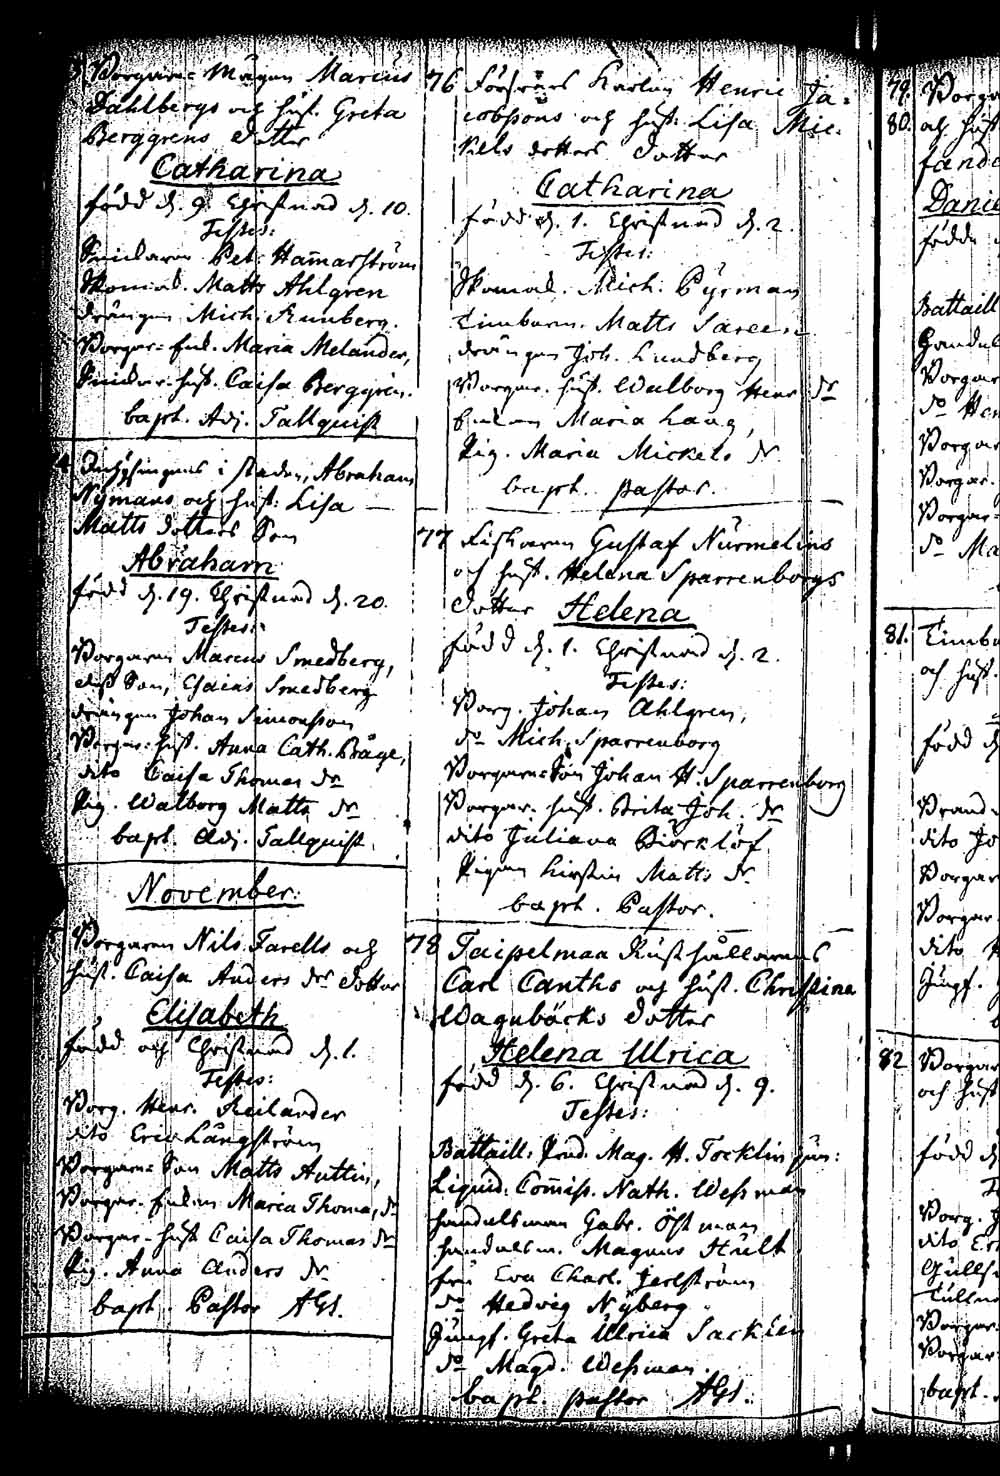 Borgaren Mågen Marcus
Dahlbergs och Hust. Greta
Berggrens dotter
Catharina
född d. 9. Christnad d. 10.
Testes:
Pet: Hamarström
Skomak. Matts Ahlgren
drängen Mich: Runberg.
Borgar-Enk. Maria Melander,
hust. Caisa Berggren.
bapt. Adj. Tallquist
i staden, Abraham
Nÿmans och hust: Lisa
Matts dotters Son
Abraham
född d. 19. Christnad d. 20.
Testes:
Borgaren Marcus Smedberg,
dess Son, Esaias Smedberg
drängen Johan Simonsson
Borgar-hust. Anna Cath. Bråge,
dito Caisa Thomas dr
Pig. Walborg Matts dr
bapt. Adj. Tallquist.
November:
Borgaren Nils Farells och
hust. Caisa Anders drs dotter
Elisabeth
född och Christnad d. 1.
Testes:
Borg. Henr. Keilander
dito Eric Långström
Borgare-Son Matts Huttin,
Borgar-Enkan Maria Thomas dr
Borgar-hust Caisa Thomas dr
Pig. Anna Anders dr
bapt. Pastor AGS.
76 Karlen Henric Ja=
cobssons och hust: Lisa Mic=
kels dotters dotter
Catharina
född d. 1. Christnad d. 2.
Testes:
Skomak. Mich: Pÿrman
Timberm. Matts Sareen
drängen Joh. Lundberg
Borgar. hust. Walborg Henr dr
Enkan Maria Laag,
Pig. Maria Mickels dr
bapt. pastor.
77 Fiskaren Gustaf Nürmelins
och hust. Helena Sparrenborgs
dotter Helena
född d. 1. Christnad d. 2.
Testes:
Borg. Johan Ahlgren,
do Mich. Sparrenborg
Borgare-Son Johan H. Sparrenborg
Borgar. hust. Brita Joh. dr
dito Juliana Biörklöf
Pigan Kirstin Matts dr
bapt. Pastor.
78 Taipelmaa Rusthållarens
Carl Canths och hust. Christina
Wagnbäcks dotter
Helena Ulrica
född d. 6. Christnad d. 9.
Testes:
Bataill: Pred. Mag. H. Tocklin jun:
Liquid: Comiss. Nath. Wessman
handelsman Gabr. Östman
handelsm. Magnus Hult
fru Eva Charl. Jerlström
do Hedvig Nÿberg
Jungf. Greta Ulrica Sacklen
do Magd. Wessman.
bapt. pastor AGS.
79.
80. och hust
Danie
födde
Bataill
Borgar
do Hen
Borgar
Borgar.
Borgar-
do Ma
81. Timb
och hust.
född d
dito Jo
Borgar
Borgar
dito
Jungf.
82 Borgar
och hust
född d
Borg. J
dito Er
Borgar.
Borgar
bapt.